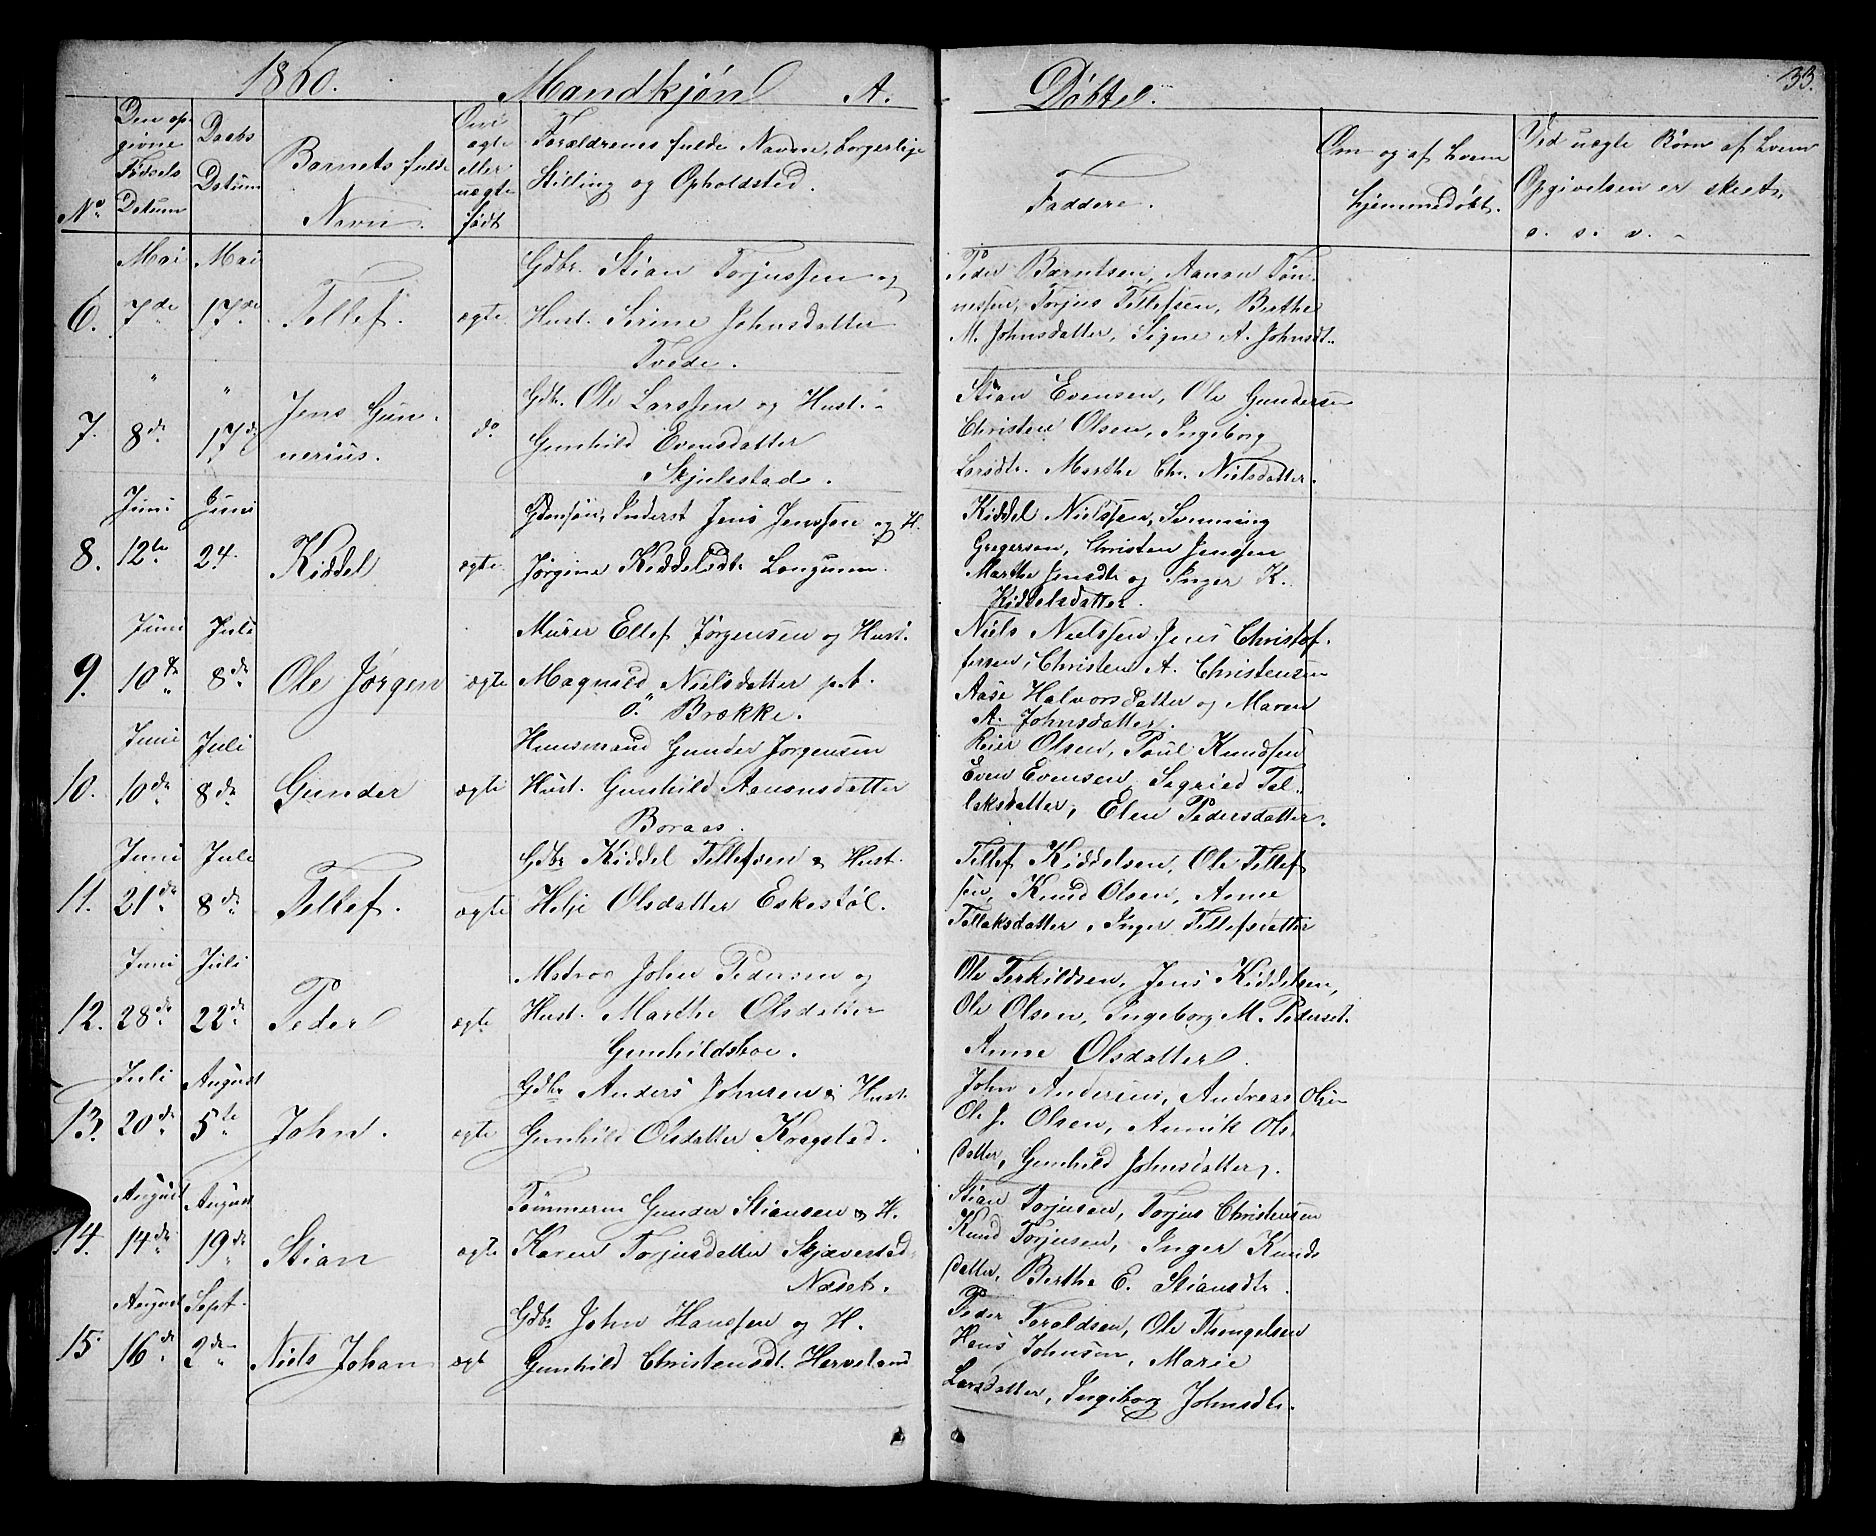 1860. Mandkjøn A. Døbte. 33.
No.
Den op-
givne
Fødsels
Datum
Daabs
Datum
Barnets fulde
Navn.
Om
ægte
eller
uægte
født
Forældrenes fulde Navne, borgerlige
Stilling og Opholdsted.
Faddere.
Om og af hvem
hjemmedøbt.
Ved uægte Børn af hvem
Opgivelsen er skeet,
o. s. v. -
6.
Mai
7de
Mai
17de
Tellef.
ægte
Gdbr. Stian Torjussen og
Hust. Serine Johnsdatter
Tvede.
Peder Berntsen, Aanon Tøn-
nessen, Torjus Tellefsen, Berthe
M. Johnsdatter, Signe A. Johnsdt.
7.
"
8de
"
17de
Jens Gun-
nerius.
do
Gdb. Ole Larssen og Hust.
Gunhild Evensdatter
Skjulestad.
Stian Evensen, Ole Gundersen
Christen Olsen, Ingeborg
Larsdtr. Marthe Chr. Nielsdatter.
8.
Juni
12te
Juni
24.
Kiddel
ægte
Gdmsøn, Inderst Jens Jenssen og H.
Jørgine Kiddelsdt. Longum.
Kiddel Nielssen, Svenning
Gregersen, Christen Jenssen
Marthe Jensdt. og Inger K.
Kiddelsdatter.
9.
Juni
10de
Juli
8de
Ole Jørgen
ægte
Murer Ellef Jørgensen og Hust.
Magnild Nielsdatter p. t.
Brække.
Niels Nielssen, Jens Christof-
fersen, Christen A. Christensen
Aase Halvorsdatter og Maren
A. Johnsdatter.
10.
Juni
10de
Juli
8de
Gunder
ægte
Huusmand Gunder Jørgensen
Hust. Gunhild Aanonsdatter
Boraas.
Reier Olsen, Poul Knudsen
Even Evensen, Segried Tel-
laksdatter, Elen Pedersdatter.
11.
Juni
21de
Juli
8de
Tellef.
ægte
Gdbr Kiddel Tellefsen & Hust.
Helje Olsdatter Eskestøl.
Tellef Kiddelsen, Ole Tellef
sen, Knud Olsen, Anne
Tellaksdatter, Inger Tellefsdatter
12.
Juni
28de
Juli
22de
Peder
ægte
Matros John Pedersen og
Hust. Marthe Olsdatter
Gunhildsboe.
Ole Terkildsen, Jens Kiddelsen,
Ole Olsen, Ingeborg M. Pedersdt.
Anne Olsdatter.
13.
Juli
20de
August
5te
John.
ægte
Gdbr Anders Johnsen & Hust.
Gunhild Olsdatter Kragsted.
John Andersen, Andreas Olsen
Ole J. Olsen, Annik Ols-
datter, Gunhild Johnsdatter.
14.
August
14de
August
19de
Stian
ægte
Tømmerm Gunder Stiansen & H.
Karen Torjusdatter Skjævestad-
Næset.
Stian Torjusen, Torjus Christensen
Knud Torjusen, Inger Knuds
datter, Berthe E. Stiansdtr.
15.
August
16de
Sept.
2den
Niels Johan
ægt
Gdbr John Hanssen og H.
Gunhild Christensdt. Herveland
Peder Toroldsen, Ole Thengelsen
Hans Johnsen, Marie
Larsdatter, Ingeborg Johnsdtr.